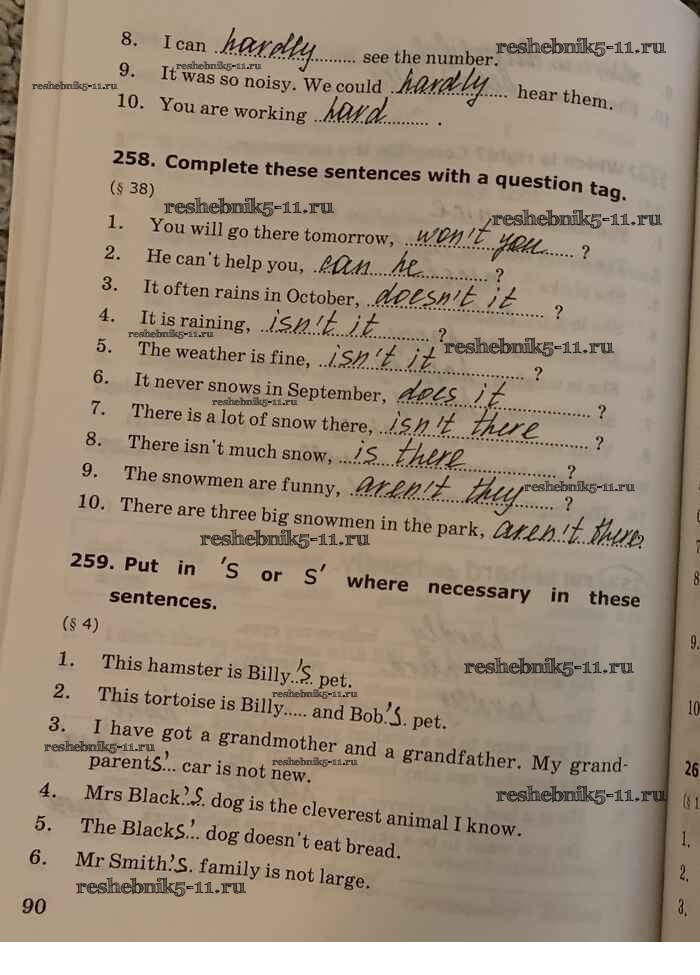 8. I can hardly see the number. reshebnik5-11.ru
reshebnik5-11.ru
9. It was so noisy. We could hardly hear them.
10. You are working hard .
258. Complete these sentences with a question tag.
(§ 38)
reshebnik5-11.ru reshebnik5-11.ru
1. You will go there tomorrow, won't you ?
2. He can't help you, can he ?
3. It often rains in October, doesn't it ?
4. It is raining, isn't it ?
reshebnik5-11.ru reshebnik5-11.ru
5. The weather is fine, isn't it ?
6. It never snows in September, does it ?
reshebnik5-11.ru
7. There is a lot of snow there, isn't there ?
8. There isn't much snow, is there ?
9. The snowmen are funny, aren't they ? reshebnik5-11.ru
10. There are three big snowmen in the park, aren't there?
reshebnik5-11.ru
259. Put in 's or s' where necessary in these
sentences.
(§ 4)
1. This hamster is Billy's pet. reshebnik5-11.ru
reshebnik5-11.ru
2. This tortoise is Billy..... and Bob's. pet.
3. I have got a grandmother and a grandfather. My grand-
reshebnik5-11.ru reshebnik5-11.ru
parents'.. car is not new.
4. Mrs Black's. dog is the cleverest animal I know.
reshebnik5-11.ru
5. The Blacks'.. dog doesn't eat bread.
6. Mr Smith's. family is not large.
reshebnik5-11.ru
90
8
9.
10
26
(§ 1
1.
2.
3.